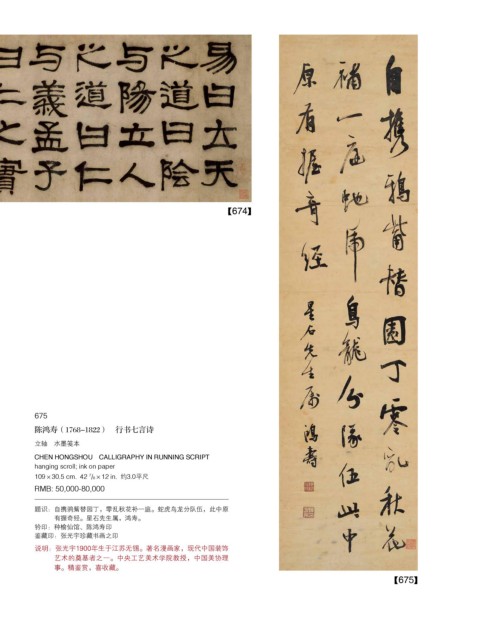 易曰立天
之道曰陰
与陽立人
之道曰仁
与義孟子
曰仁之實
【674】
自携鴉觜替園丁零亂秋花
補一庭蛇虎鳥龍分隊伍此中
原有握奇經
星石先生属 鴻壽
【675】
675
陈鸿寿（1768–1822） 行书七言诗
立轴 水墨笺本
CHEN HONGSHOU CALLIGRAPHY IN RUNNING SCRIPT
hanging scroll; ink on paper
109 × 30.5 cm. 42 7/8 × 12 in. 约3.0平尺
RMB: 50,000-80,000
题识：自携鸦觜替园丁，零乱秋花补一庭。蛇虎鸟龙分队伍，此中原
有握奇经。星石先生属，鸿寿。
钤印：种榆仙馆、陈鸿寿印
鉴藏印：张光宇珍藏书画之印
说明：张光宇1900年生于江苏无锡。著名漫画家，现代中国装饰
艺术的奠基者之一。中央工艺美术学院教授，中国美协理
事。精鉴赏，喜收藏。